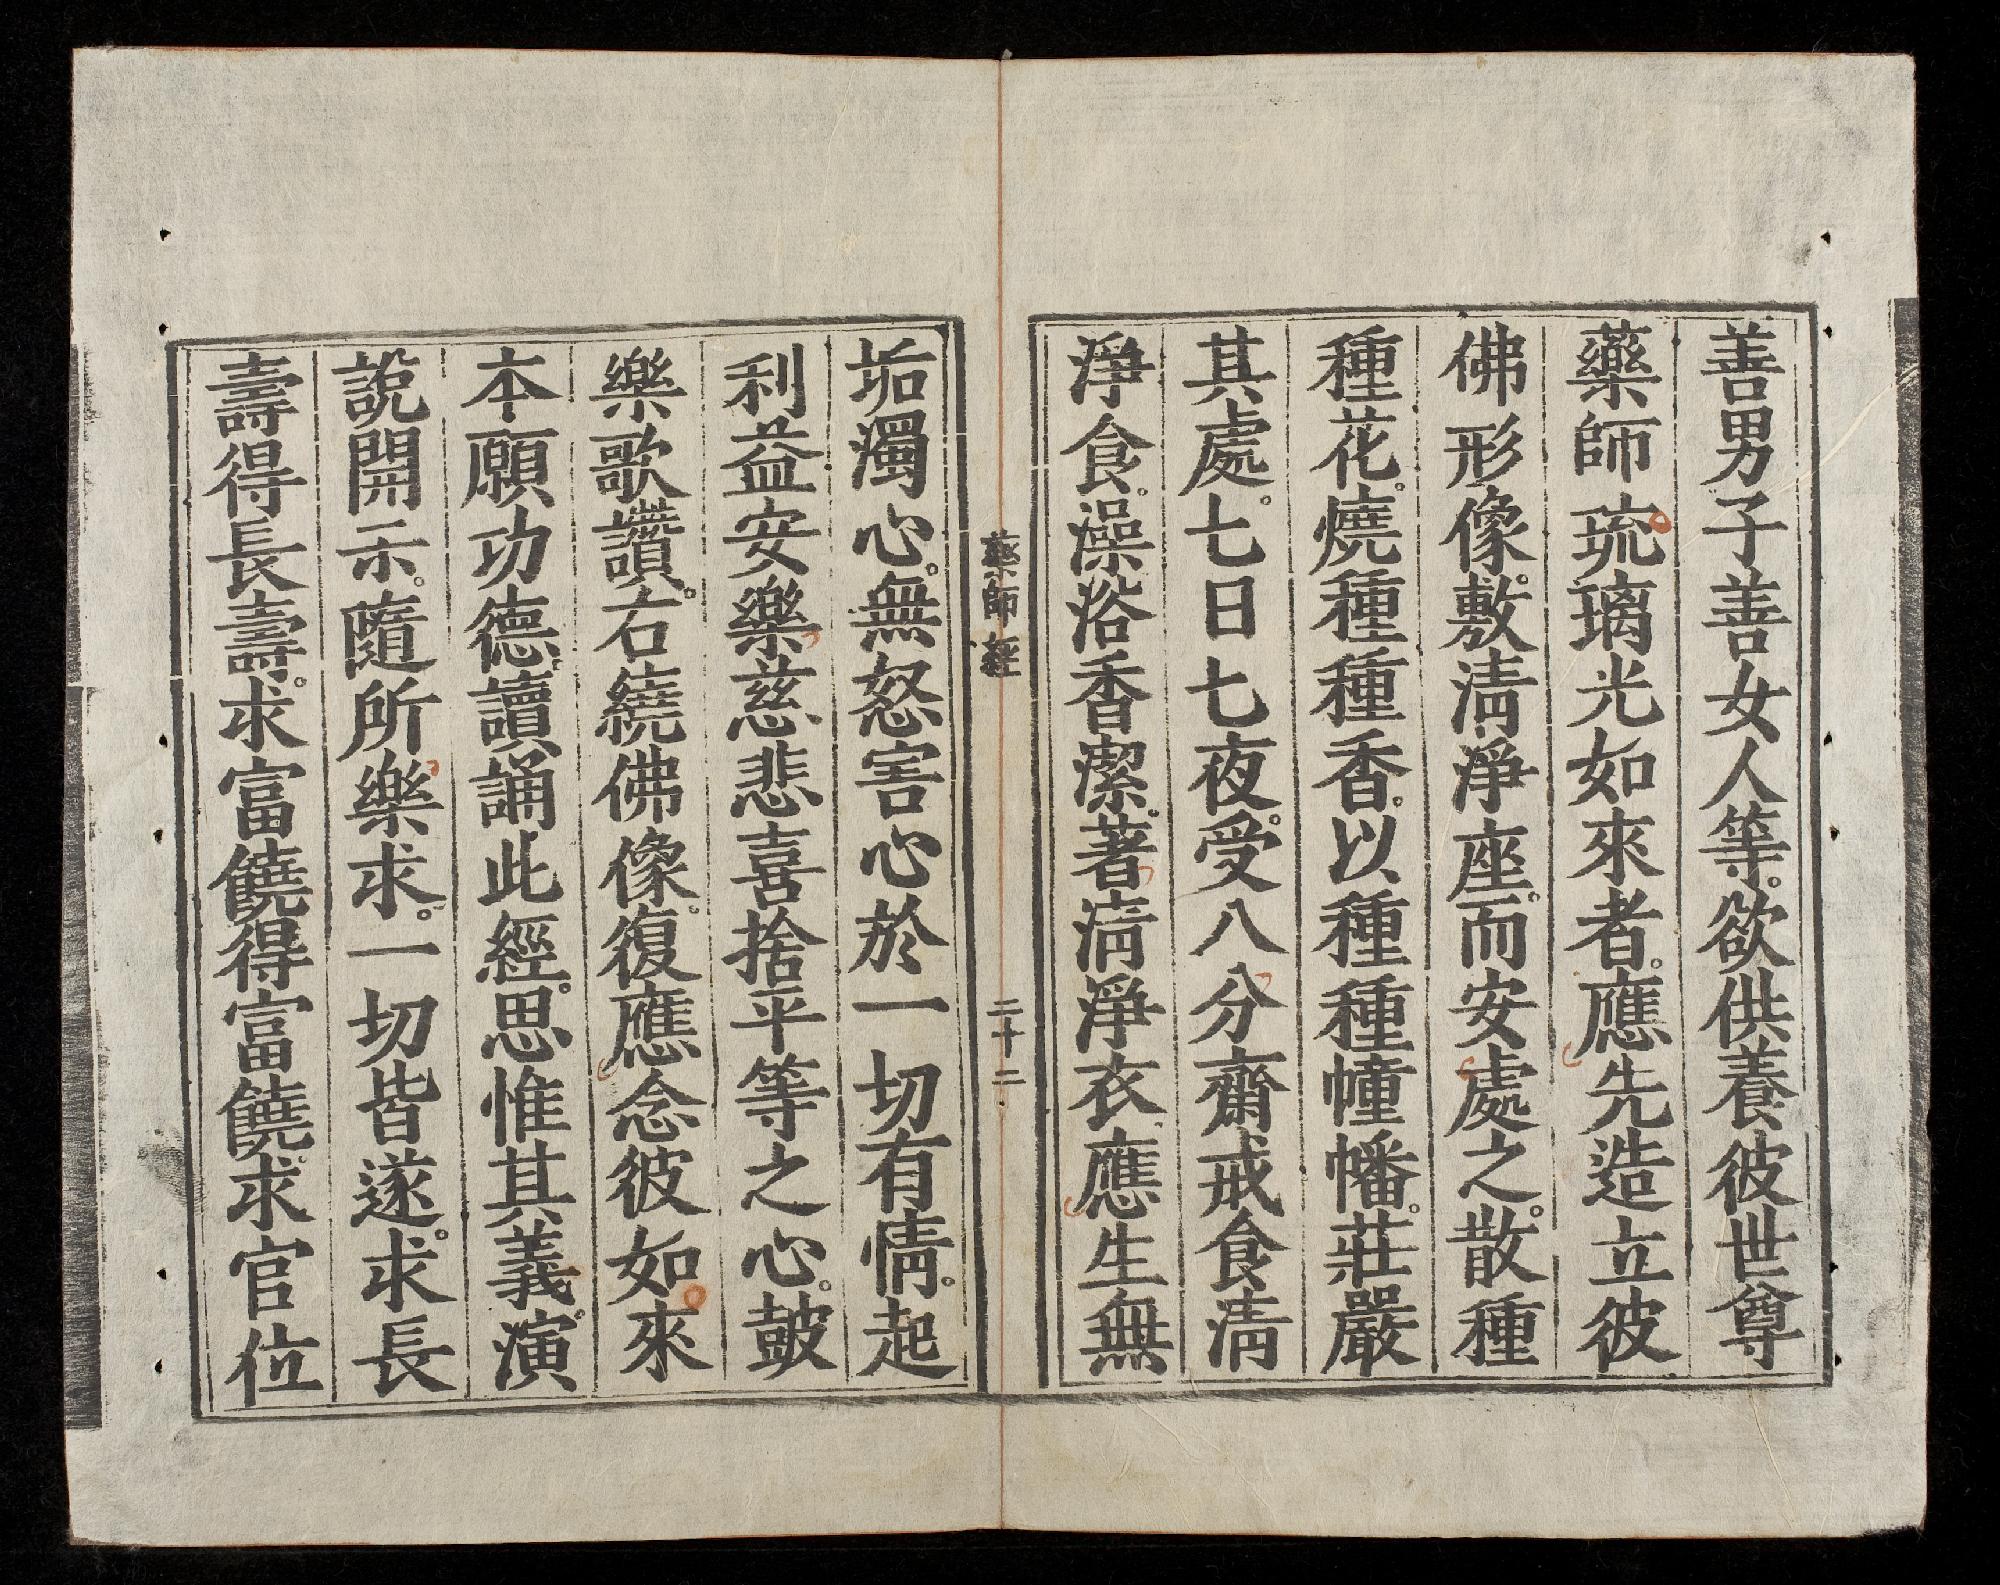 善男子善女人等。欲供養彼世尊
藥師琉璃光如來者。應先造立彼
佛形像。敷淸淨座。而安處之。散種
種花。燒種種香。以種種幢幡。莊嚴
其處。七日七夜。受八分齋戒食淸
淨食。澡浴香潔。著淸淨衣應生無
藥師經
二十二
垢濁心。無怒害心於一切有情。起
利益安樂慈悲喜捨平等之心。鼓
樂歌讚。右繞佛像。復應念彼如來
本願功德。讀誦此經。思惟其義。演
說開示。隨所樂求。一切皆遂。求長
壽得長壽。求富饒得富饒。求官位